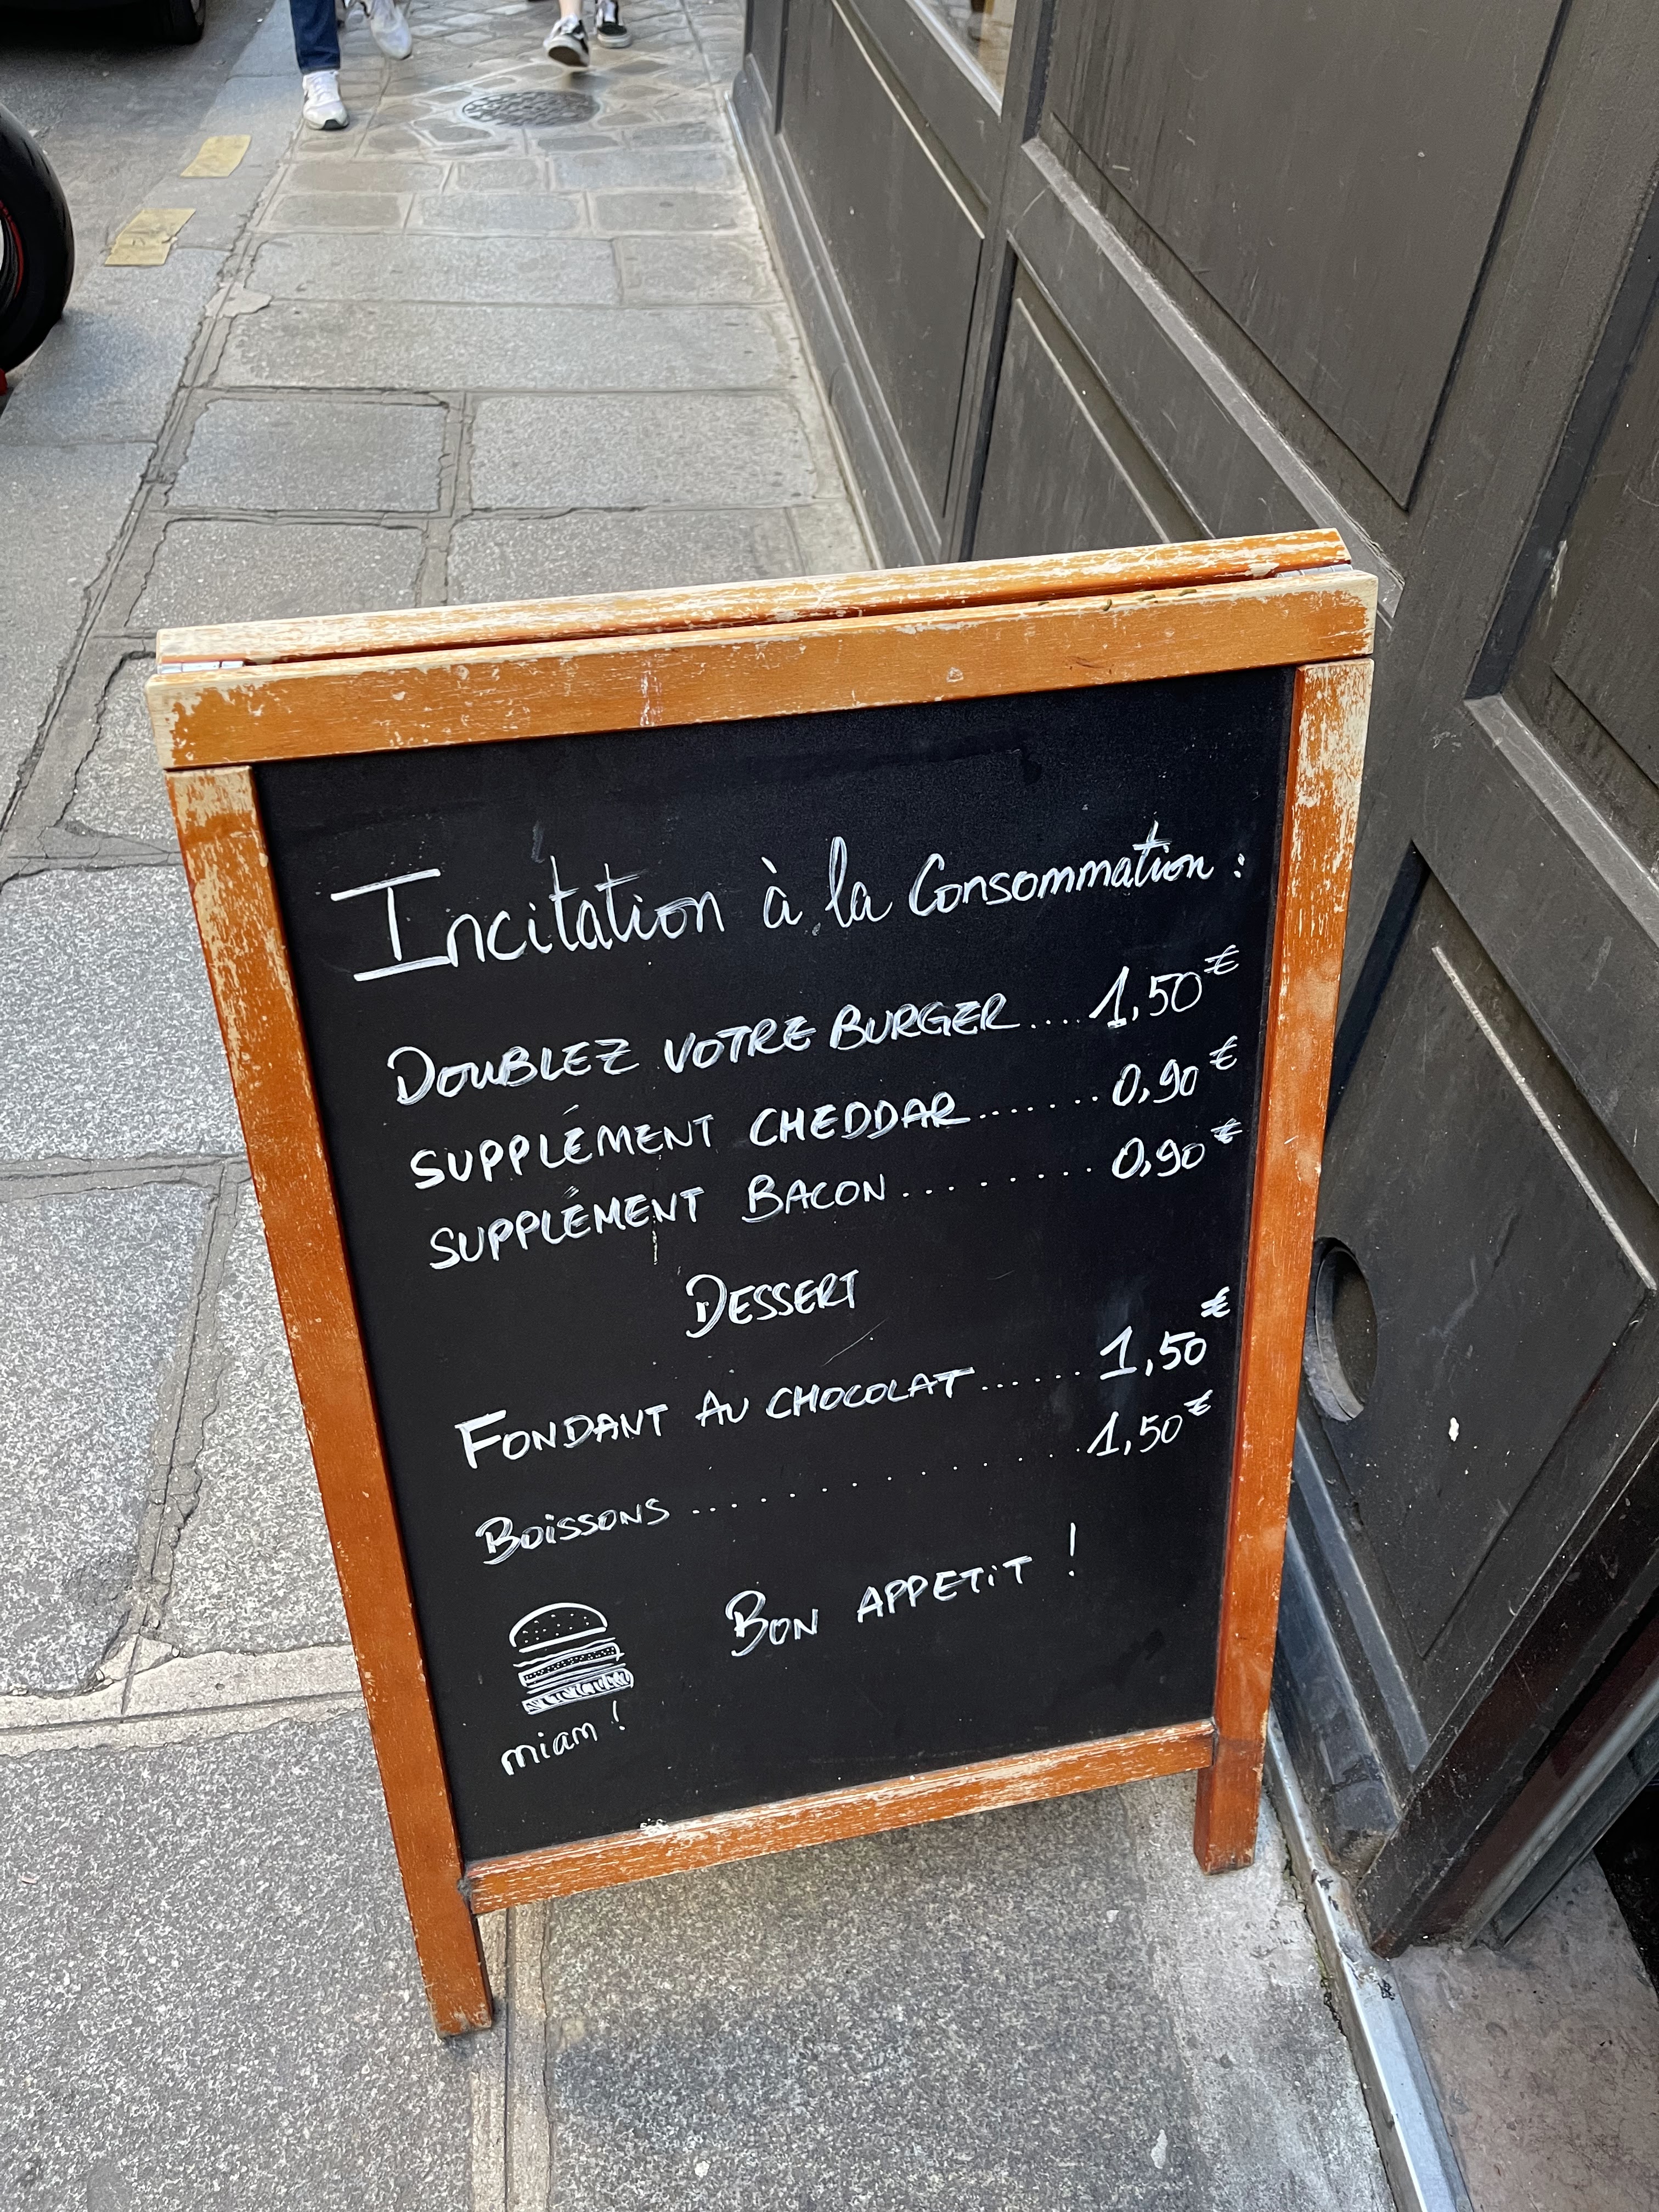 Incitation à la Consommation :
DOUBLEZ VOTRE BURGER.... 1,50€
SUPPLÉMENT CHEDDAR....... 0,90€
SUPPLÉMENT BACON......... 0,90€
DESSERT
FONDANT AU CHOCOLAT...... 1,50€
BOISSONS ............. 1,50€
BON APPETIT !
miam !